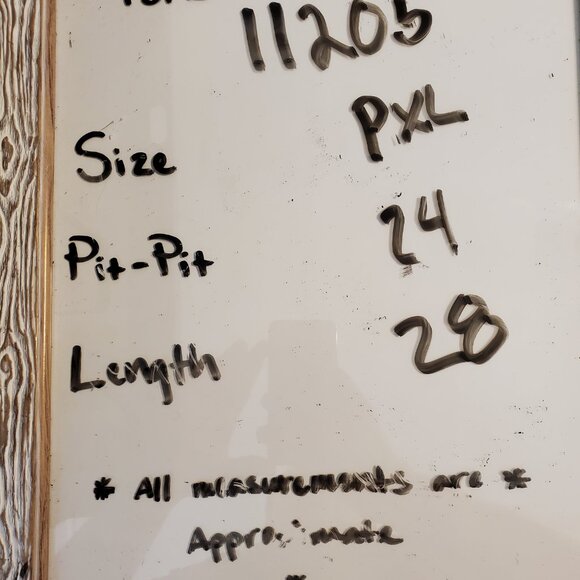 11205
Size PXL
Pit-Pit 24
Length 28
* All measurements are *
Approximate